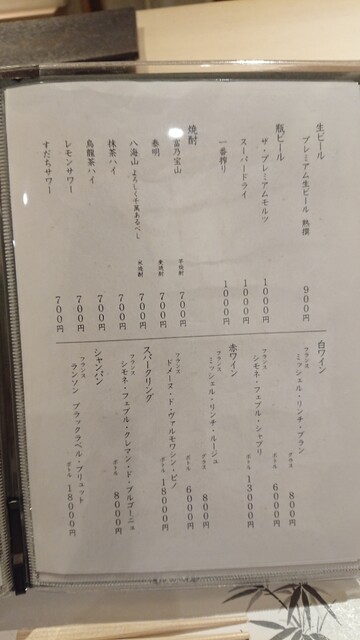 生ビール
プレミアム生ビール 熟撰 900円
瓶ビール
ザ・プレミアムモルツ 1000円
スーパードライ 1000円
一番搾り 1000円
焼酎
富乃宝山 芋焼酎 700円
泰明 麦焼酎 700円
八海山 よろしく千萬あるべし 米焼酎 700円
抹茶ハイ 700円
烏龍茶ハイ 700円
レモンサワー 700円
すだちサワー 700円
白ワイン
フランス ミッシェル・リンチ・ブラン グラス 800円
ボトル 6000円
フランス シモネ・フェブル・シャブリ ボトル 13000円
赤ワイン
フランス ミッシェル・リンチ・ルージュ グラス 800円
ボトル 6000円
フランス ドメーヌ・ド・ヴァルモワシン・ピノ ボトル 18000円
スパークリング
フランス シモネ・フェブル・クレマン・ド・ブルゴーニュ ボトル 8000円
シャンパン
フランス ランソン ブラックラベル・ブリュット ボトル 18000円